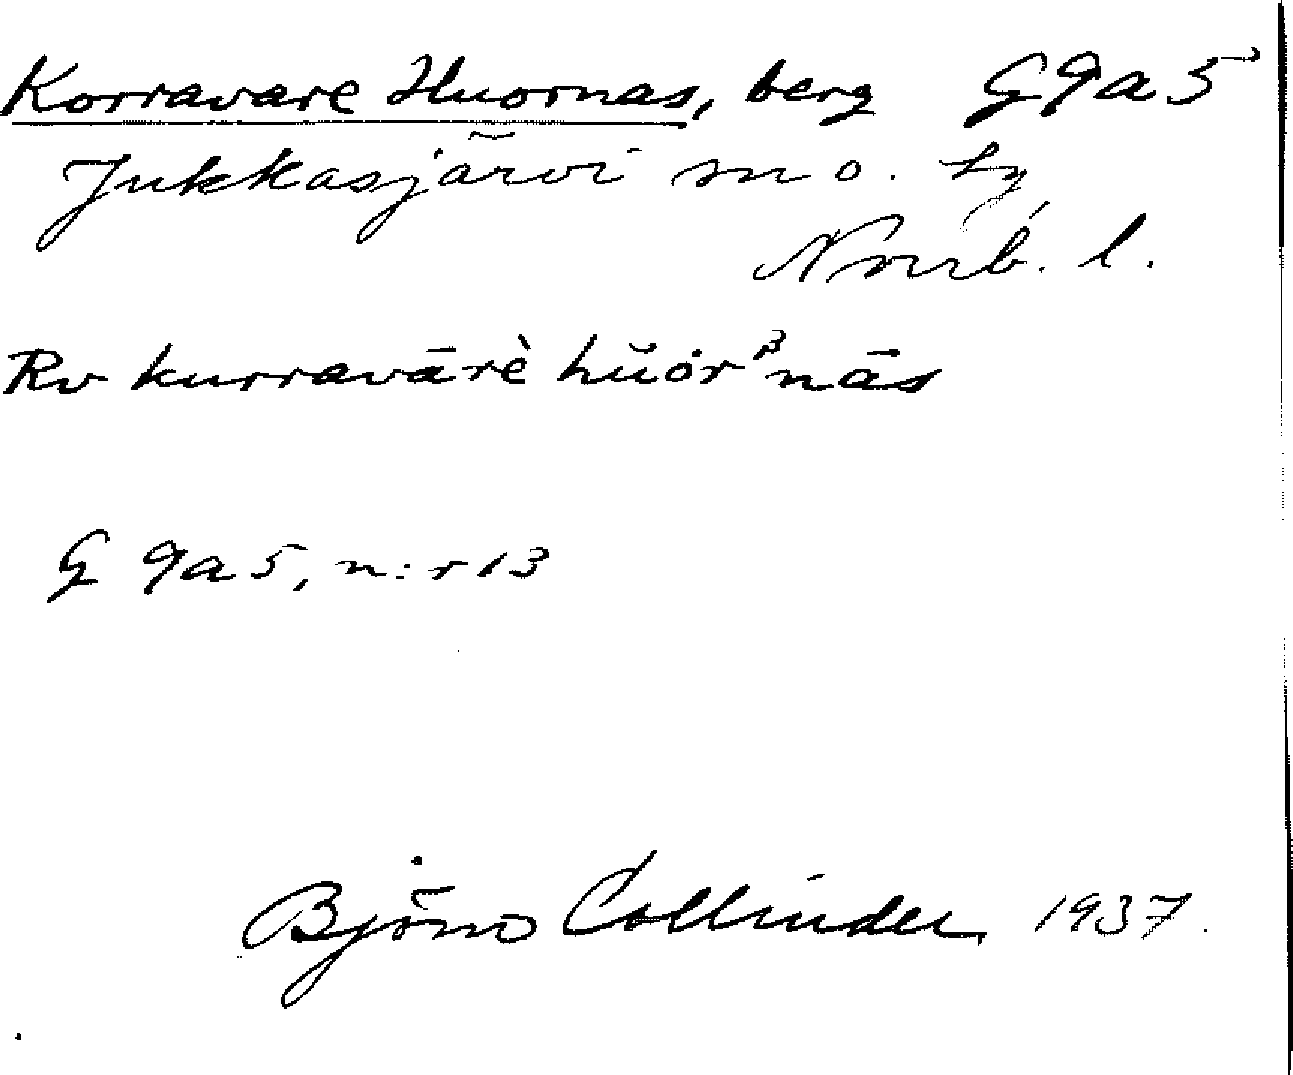 Korravare Huornas, berg G9a5
Jukkasjärvi sn o. tg
Norrb. l.
Rv kurravārè hŭȯrᵝnās
G 9a5, n:r 13
Björn Collinder 1937.